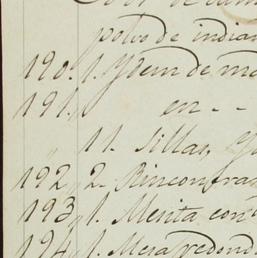 polvo de indian
190. 1. Ydem de me
191. en - -
„ 11. Sillas, Y
192, 2. Rinconeras
193, 1. Mesita con
194, 1. Mesa redond